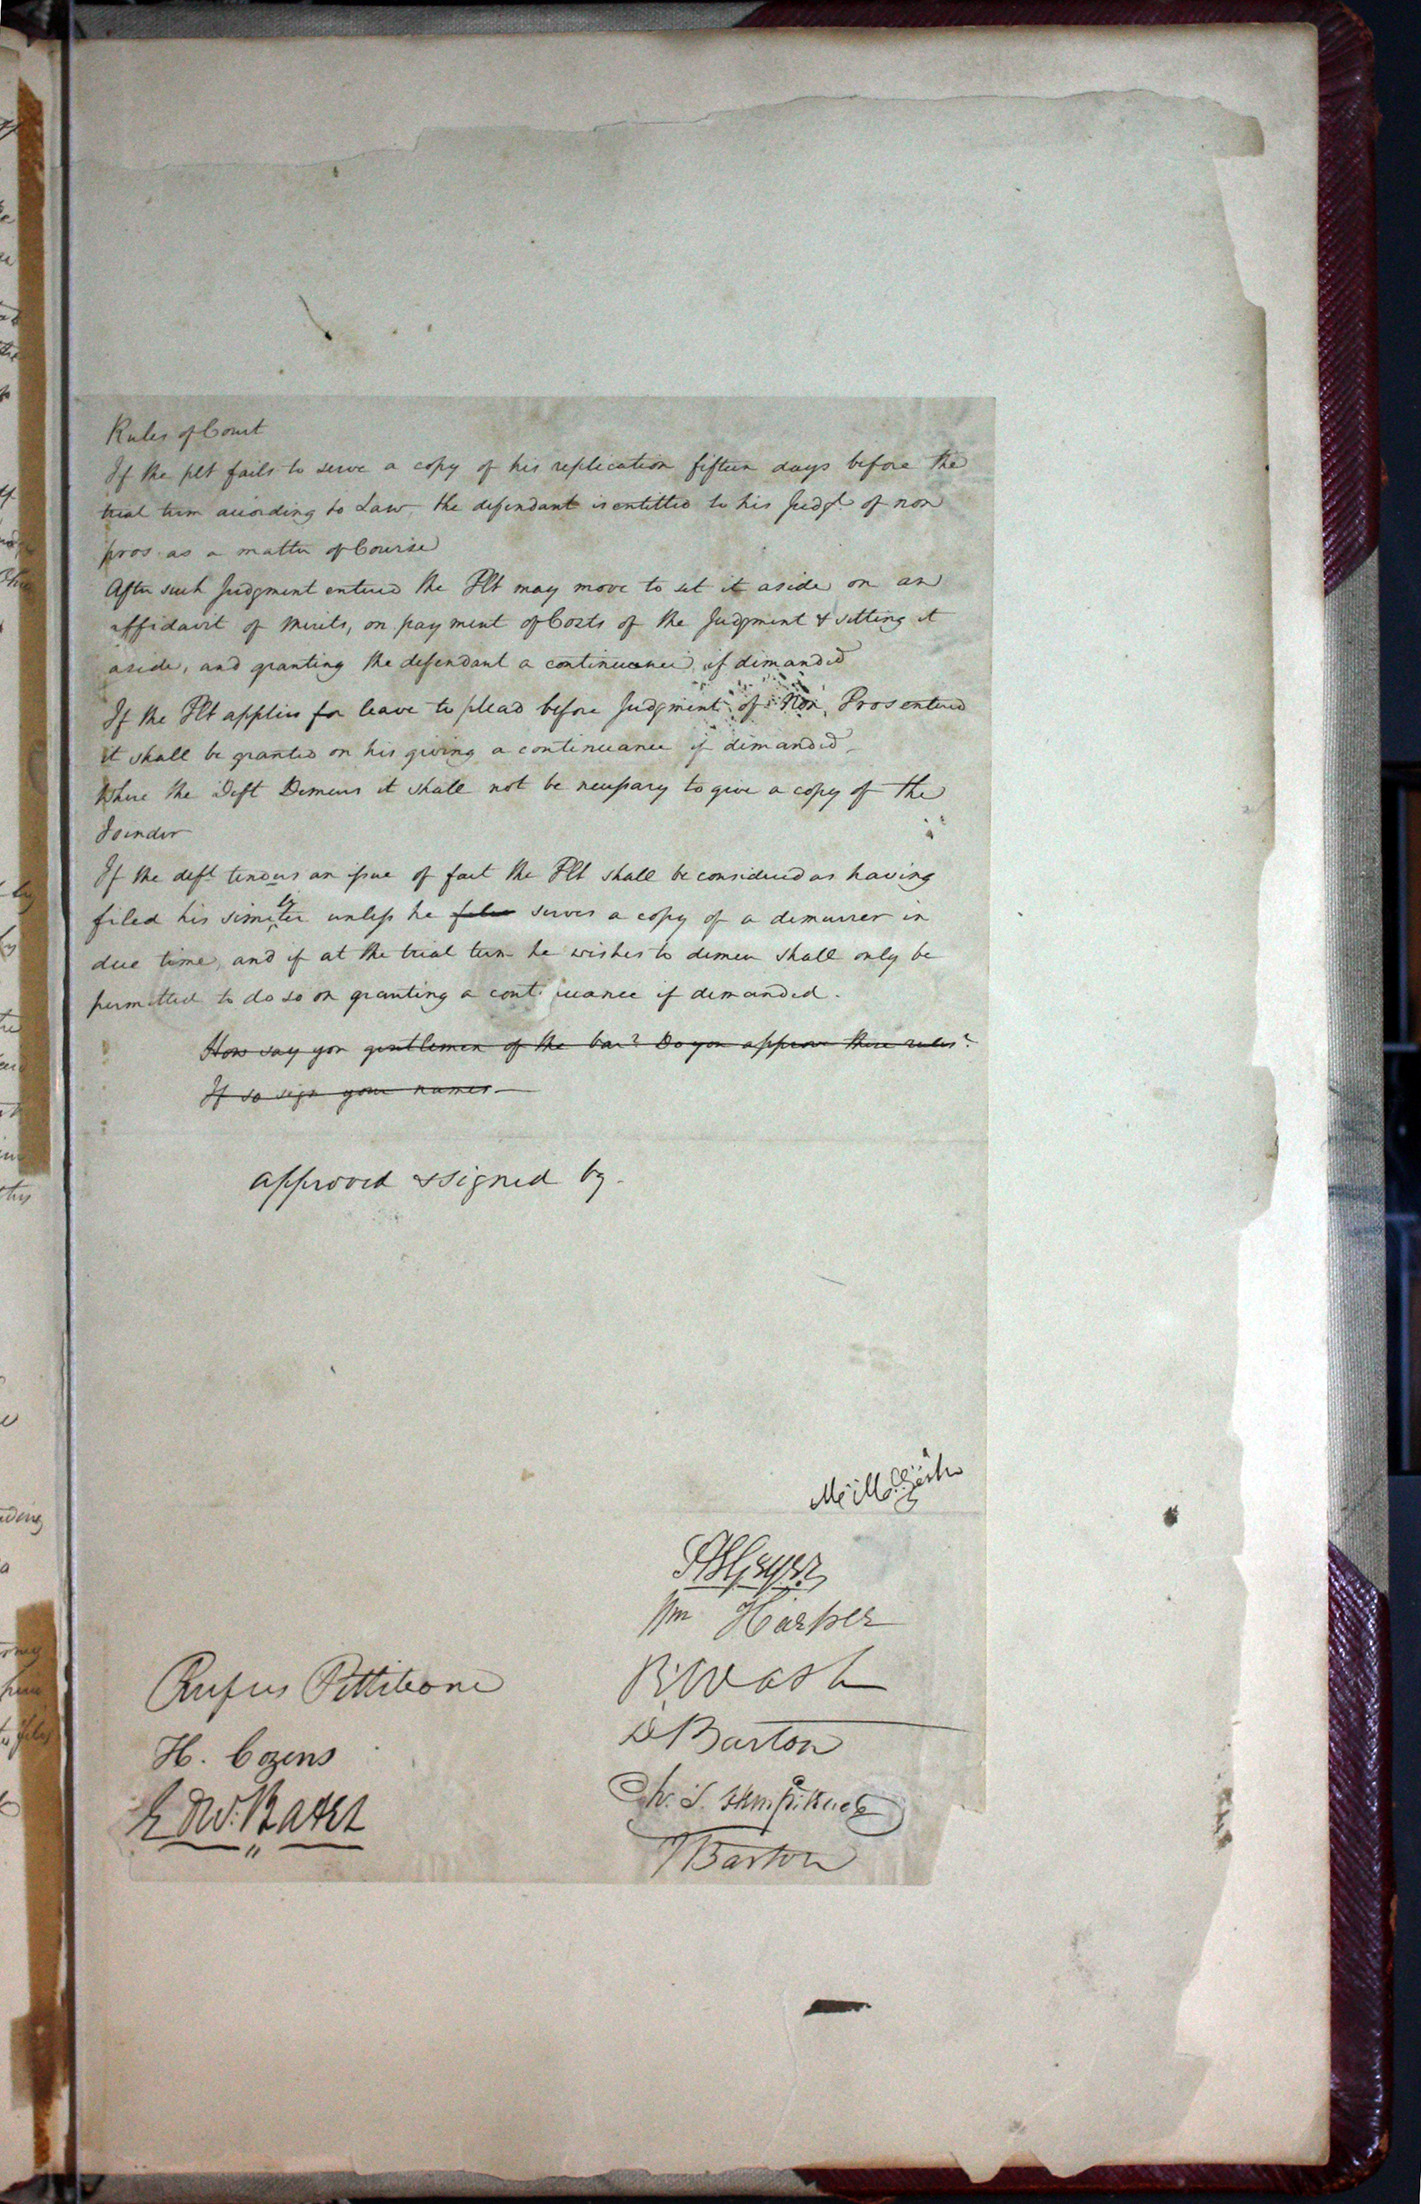 Rules of Court
If the plt fails to serve a copy of his replication fifteen days before the
trial term according to Law, the defendant is entitled to his Judgt of non
pros. as a matter of Course
After such Judgment entered the Plt may move to set it aside on an
affidavit of Merits, on payment of Costs of the Judgment & setting it
aside, and granting the defendant a continuance, if demanded
If the Plt applies for leave to plead before Judgment of Non Pros entered
it shall be granted on his giving a continuance if demanded.
Where the Deft Demurs it shall not be necessary to give a copy of the
Joinder
If the deft tenders an issue of fact the Plt shall be considered as having
filed his similiter unless he serves a copy of a demurrer in
due time, and if at the trial term he wishes to demur shall only be
permitted to do so on granting a continuance if demanded.
How say you gentlemen of the bar? Do you approve these rules?
If so sign your names—
approved & signed by.
H S Geyer
Wm Harper
R. Wash
D Barton
J Barton
Rufus Pettibone
H. Cozens
Edw. Bates